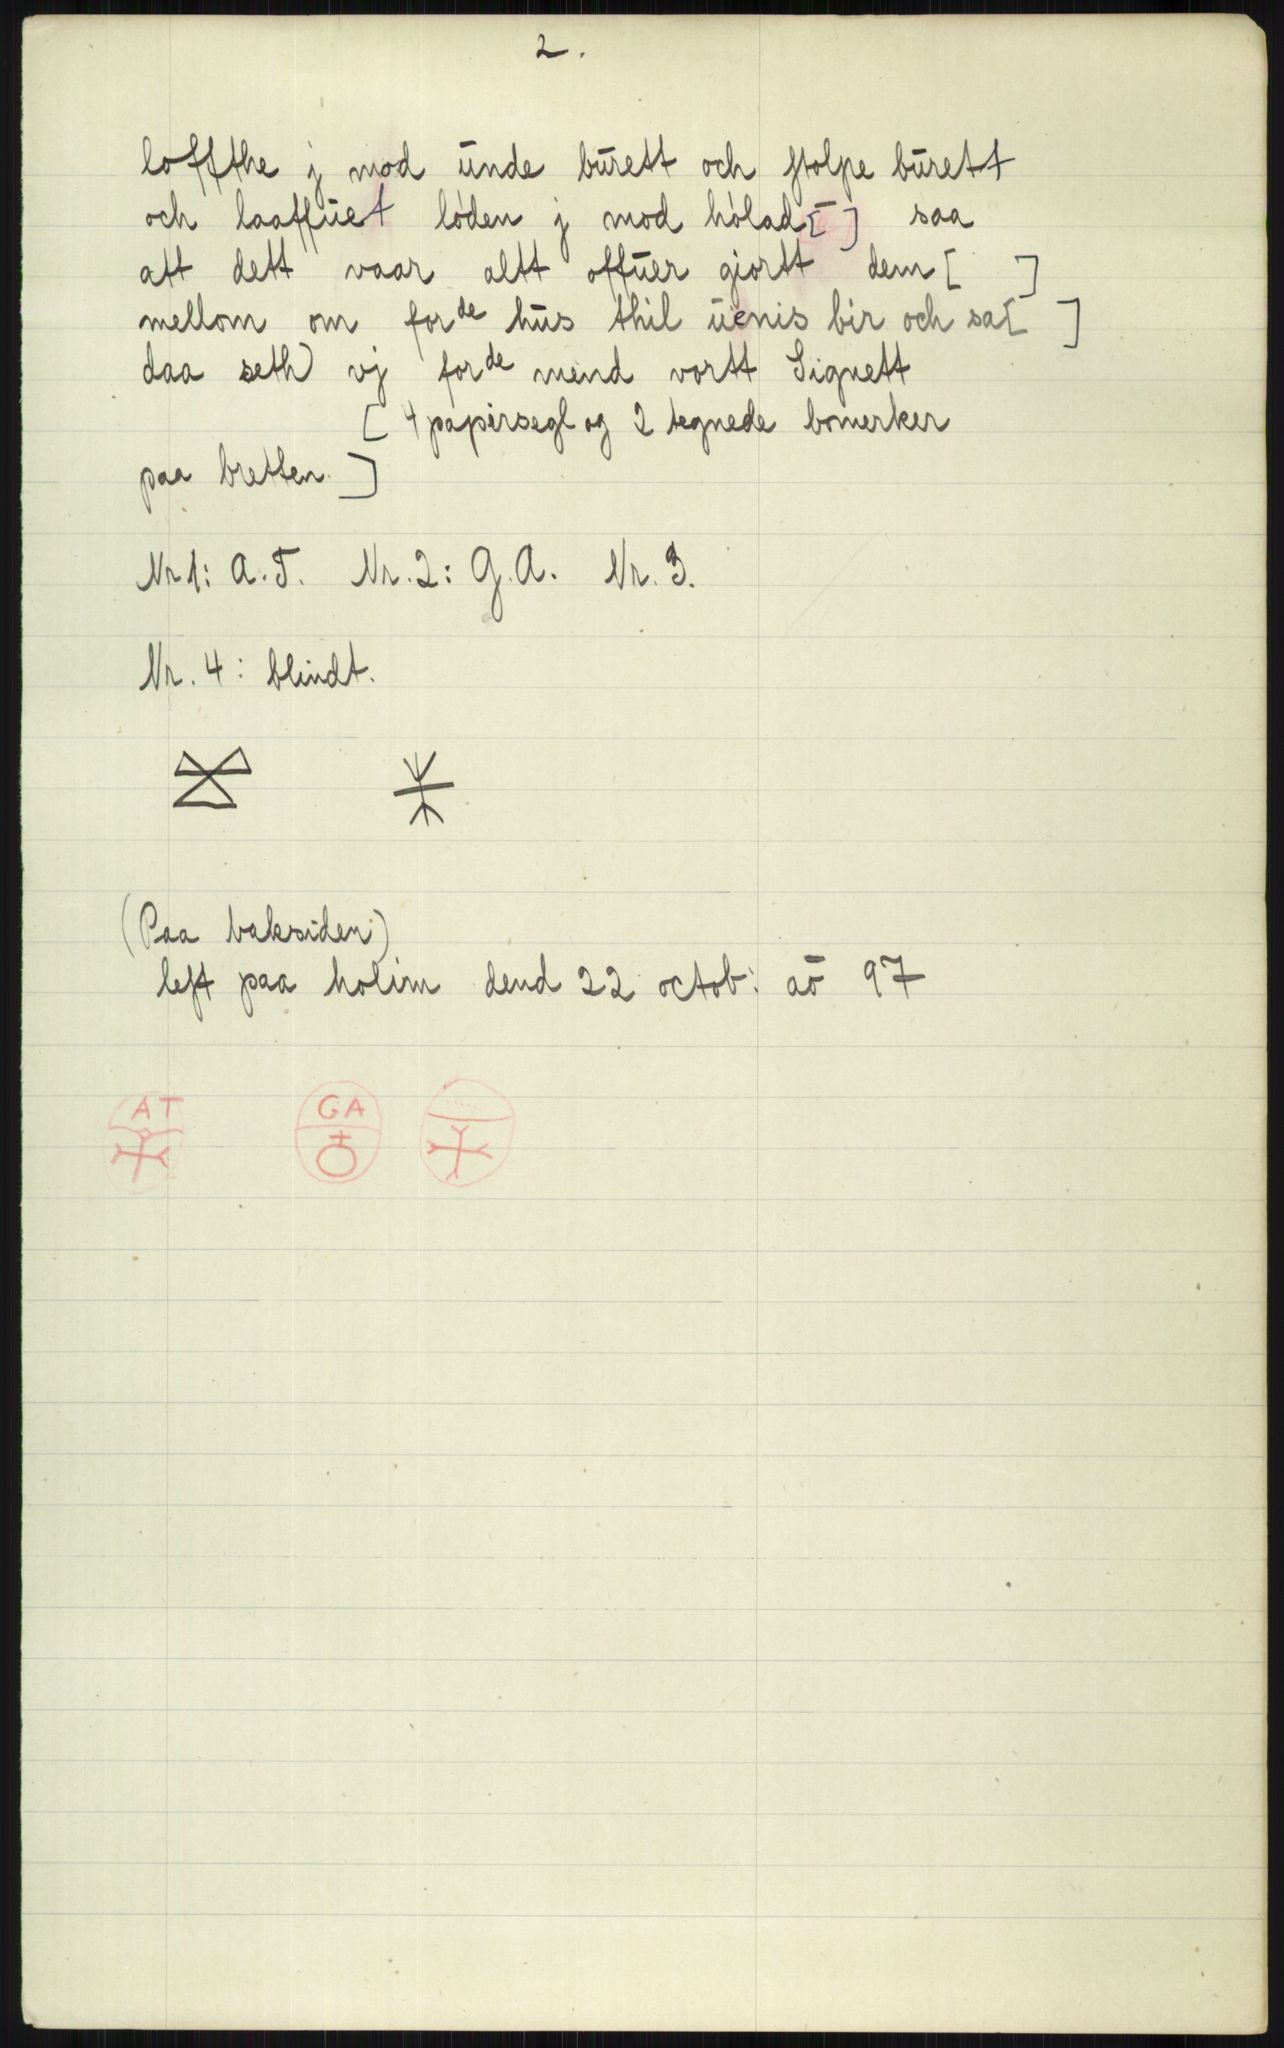 2.
loffthe j mod ūnde būrett och stolpe būrett
och laaffūet lóden j mod hólad[ ] saa
att dett vaar altt offūer giortt dem[ ]
mellom om forde hūs thil ūenis bir och sa[ ]
daa seth vj forde mend vortt Signett
[4 papirsegl og 2 tegnede bomerker
paa bretten.]
Nr 1: A.T. Nr. 2: G.A. Nr. 3.
Nr. 4: blindt.
(Paa baksiden)
lest paa holim dend 22 octob: aō 97
AT GA